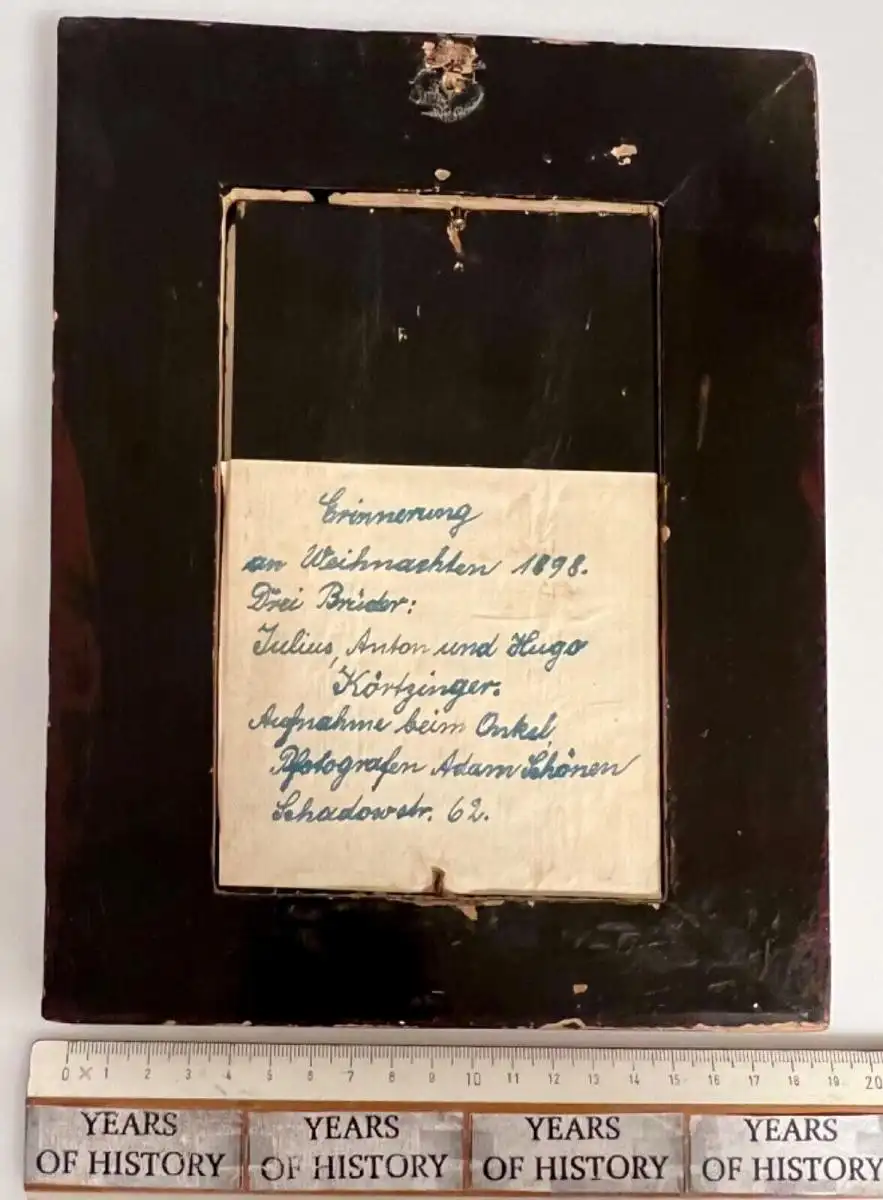 Erinnerung
an Weihnachten 1898.
Drei Brüder:
Julius, Anton und Hugo
Körtzinger.
Aufnahme beim Onkel,
Photografen Adam Schönen
Schadowstr. 62.
0 1 2 3 4 5 6 7 8 9 10 11 12 13 14 15 16 17 18 19 20
YEARS YEARS YEARS YEARS
OF HISTORY OF HISTORY OF HISTORY OF HISTORY